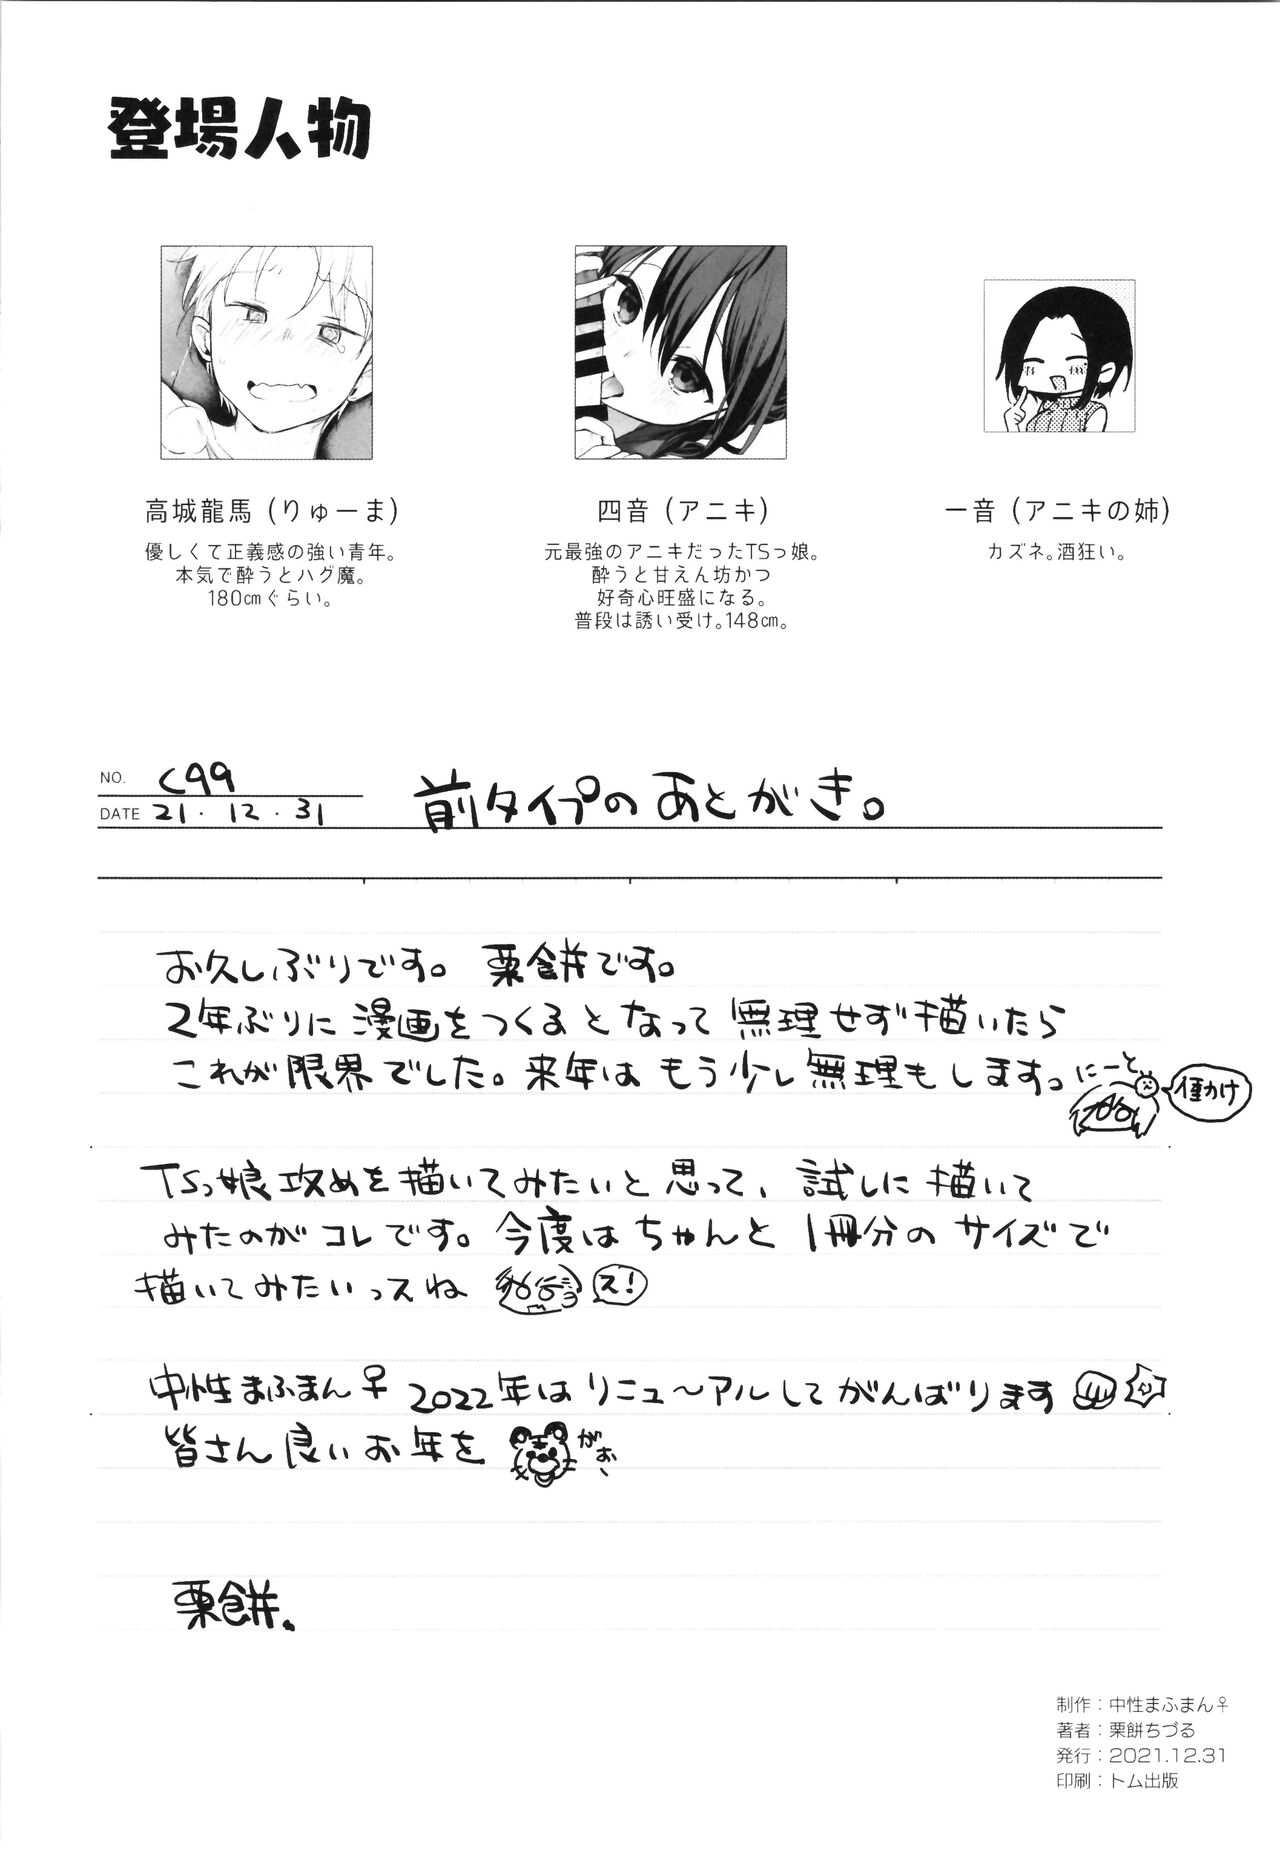 登場人物
高城龍馬(りゅーま)
優しくて正義感の強い青年。
本気で酔うとハグ魔。
180cmぐらい。
四音(アニキ)
元最強のアニキだったTSっ娘。
酔うと甘えん坊かつ
好奇心旺盛になる。
普段は誘い受け。148cm。
一音(アニキの姉)
カズネ。酒狂い。
NO. C99
DATE 21.12.31
前タイプのあとがき。
お久しぶりです。栗餅です。
2年ぶりに漫画をつくるとなって無理せず描いたら
これが限界でした。来年はもう少し無理もします。にーと
種かけ
TSっ娘攻めを描いてみたいと思って、試しに描いて
みたのがコレです。今度はちゃんと1冊分のサイズで
描いてみたいっスね
ス!
中性まふまん♀2022年はリニュ〜アルしてがんばります
皆さん良いお年を
がおー
栗餅.
制作:中性まふまん♀
著者:栗餅ちづる
発行:2021.12.31
印刷:トム出版